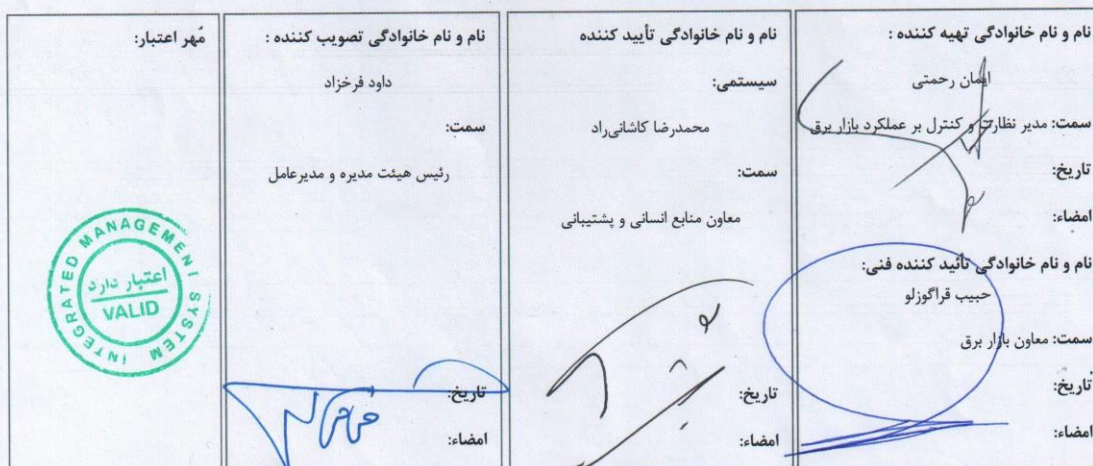 نام و نام خانوادگی تهیه کننده :
ایمان رحمتی
سمت: مدیر نظارت و کنترل بر عملکرد بازار برق
تاریخ:
امضاء:
نام و نام خانوادگی تأئید کننده فنی:
حبیب قراگوزلو
سمت: معاون بازار برق
تاریخ:
امضاء:
نام و نام خانوادگی تأیید کننده
سیستمی:
محمدرضا کاشانی‌راد
سمت:
معاون منابع انسانی و پشتیبانی
تاریخ:
امضاء:
نام و نام خانوادگی تصویب کننده :
داود فرخزاد
سمت:
رئیس هیئت مدیره و مدیرعامل
تاریخ:
امضاء:
مُهر اعتبار:
INTEGRATED MANAGEMENT SYSTEM
اعتبار دارد
VALID